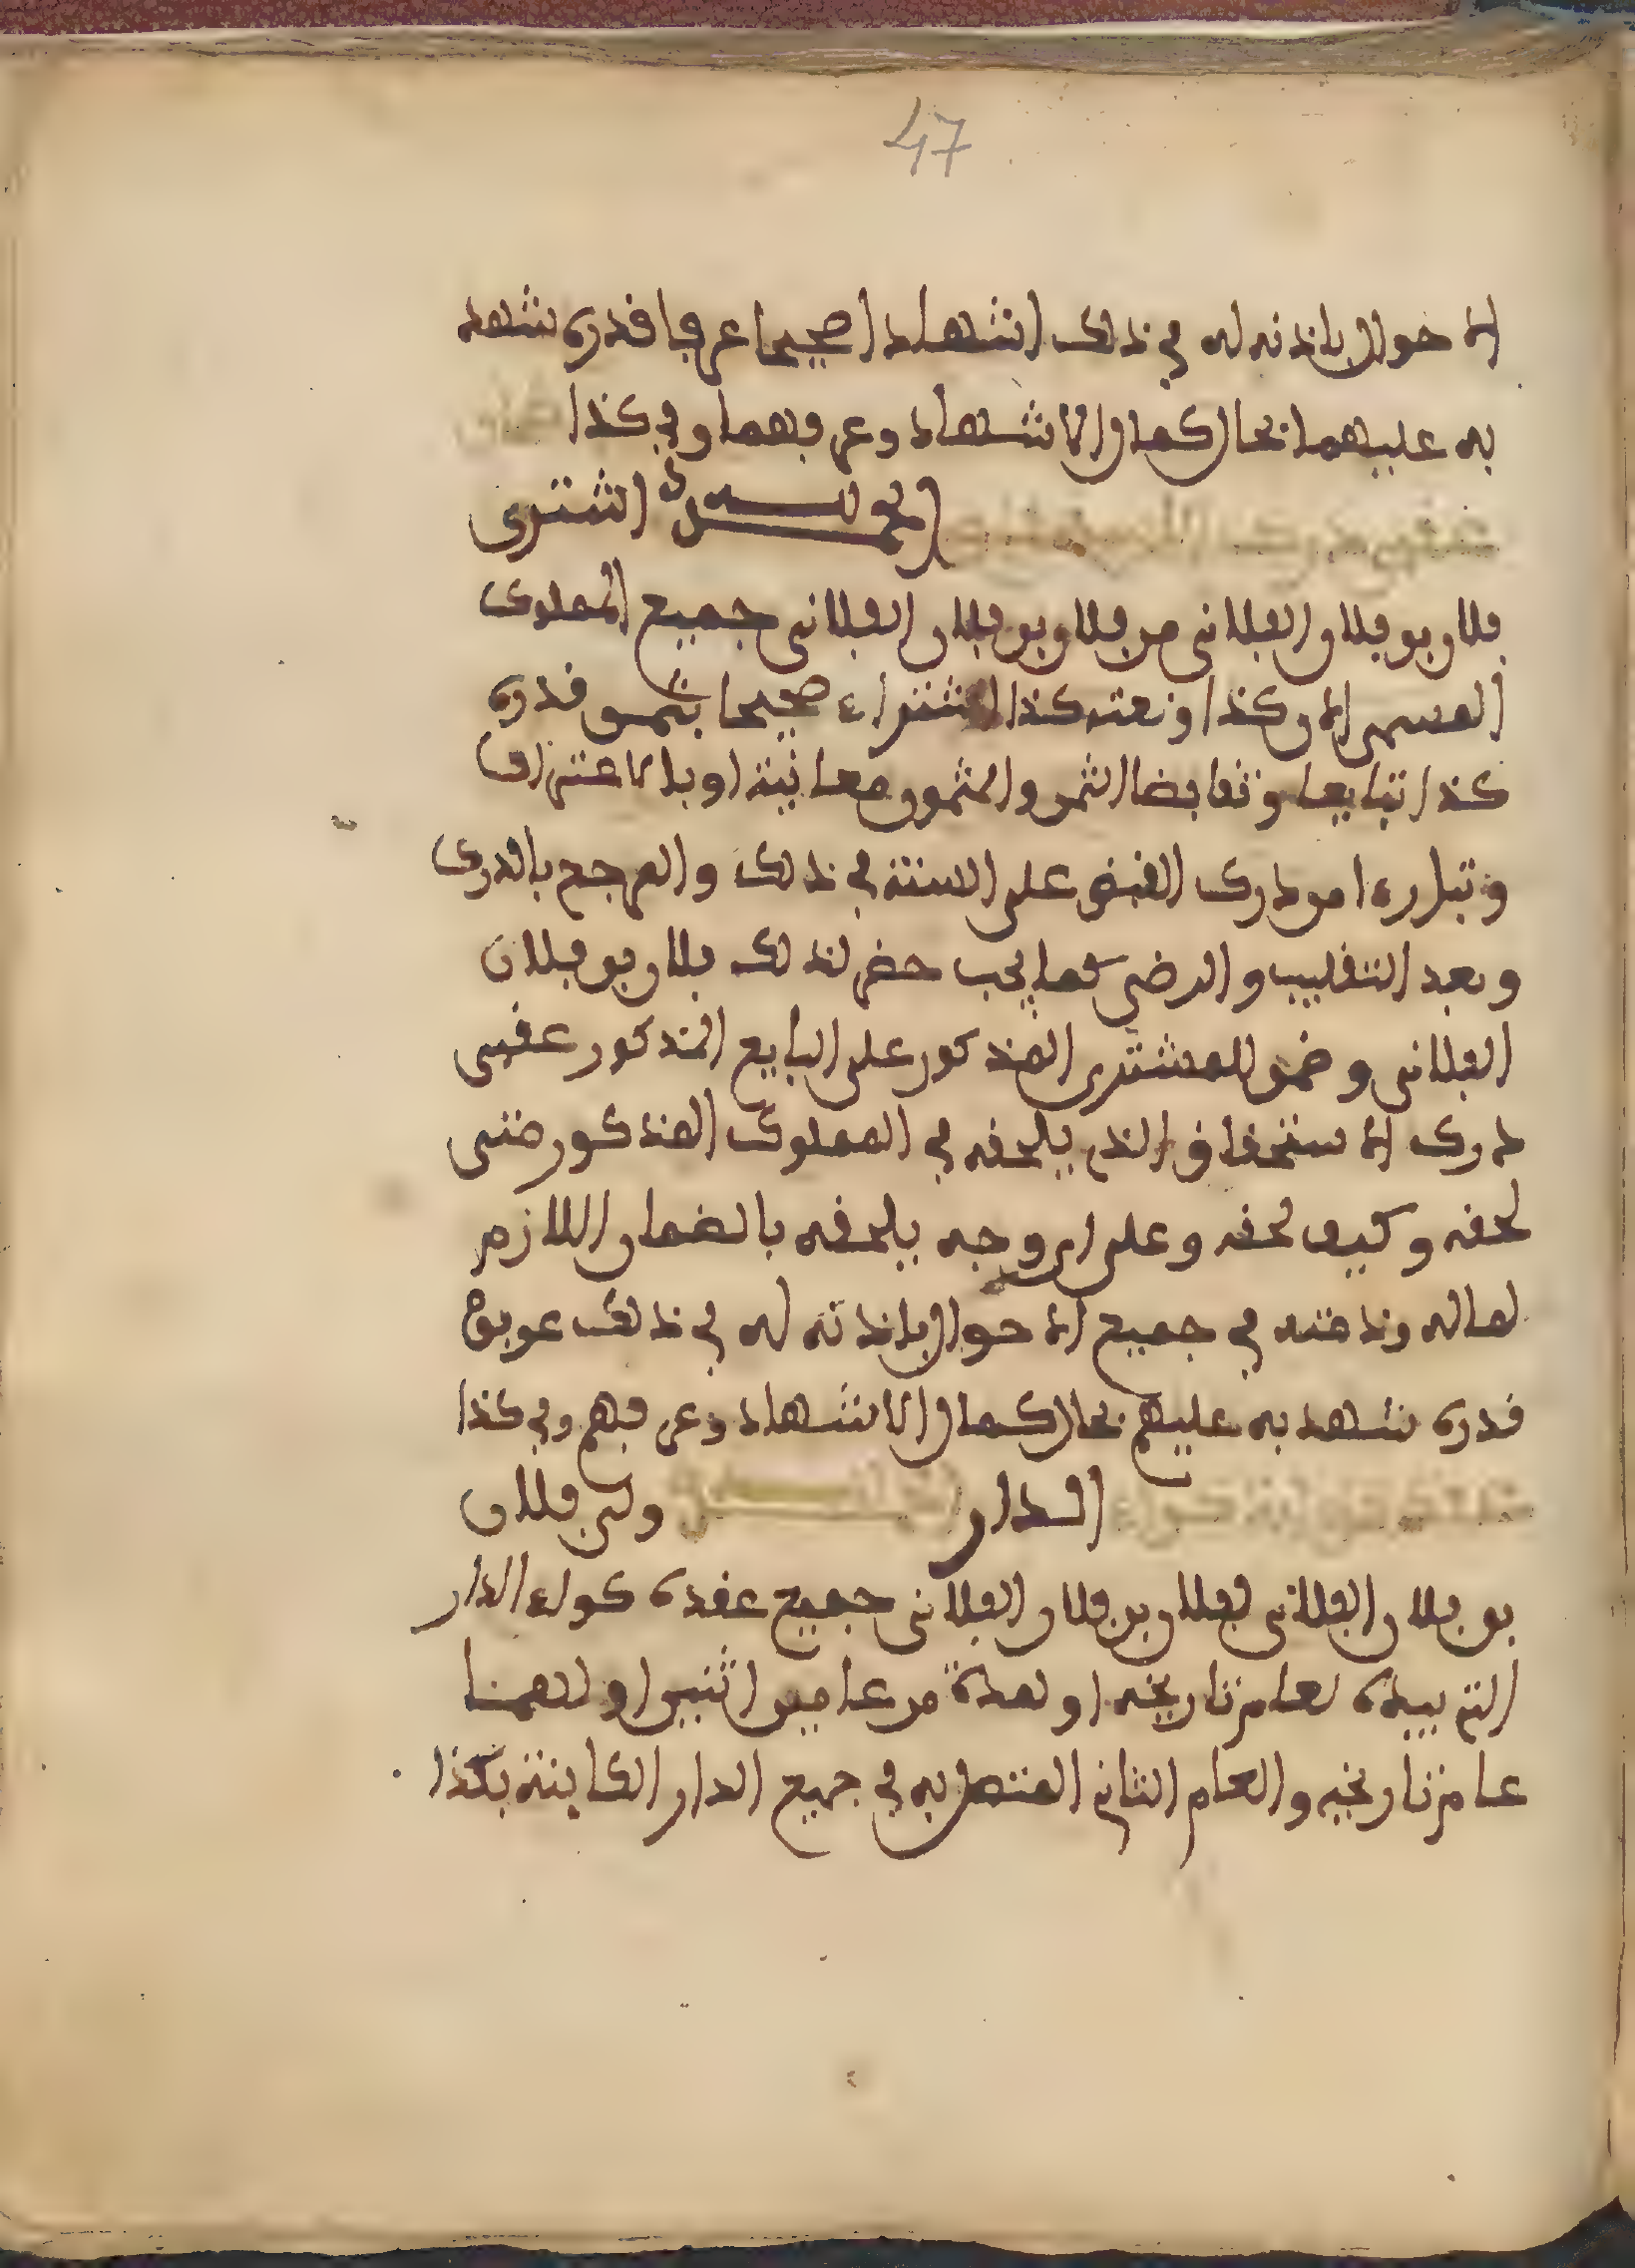 47
الاحوال باذنه له في ذلك اشهادا صحيحا عرفا قدره شهد
به عليهما بحال كمال الاشهاد وعرفهما وفي كذا
الحمد لله اشترى
فلان بن فلان الفلاني من فلان بن فلان الفلاني جميع المملوك
المسمى الان كذا ونعته كذا اشتراء صحيحا بثمن قدره
كذا تبايعا وتقابضا الثمن والمثمون معاينة او بالاعتراف
وتبارءا من درك القبض على السنة في ذلك والمرجع بالدرك
وبعد التقليب والرضى كما يجب حضر لذلك فلان بن فلان
الفلاني وضمن للمشتري المذكور على البايع المذكور عقبى
درك الاستحقاق الذي يلحقه في المملوك المذكور متى
لحقه وكيف لحقه وعلى اي وجه يلحقه بالضمان اللازم
لماله وذمته في جميع الاحوال باذنه له في ذلك عرفوا
قدره شهد به عليهم بحال كمال الاشهاد وعرفهم وفي كذا
عقد في كراء الدار ولى فلان
بن فلان الفلاني لفلان بن فلان الفلاني جميع عقدة كراء الدار
التي بيده لعام تاريخه او لمدة من عامين اثنين اولهما
عام تاريخه والعام الثاني المتصل به في جميع الدار الكاينة بكذا